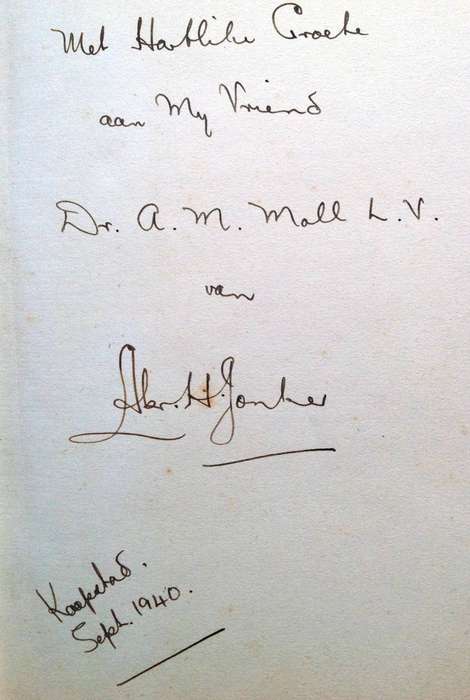 Met Hartlike Groete
aan My Vriend
Dr. A. M. Moll L.V.
van
Abr. H. Jonker
Kaapstad.
Sept. 1940.